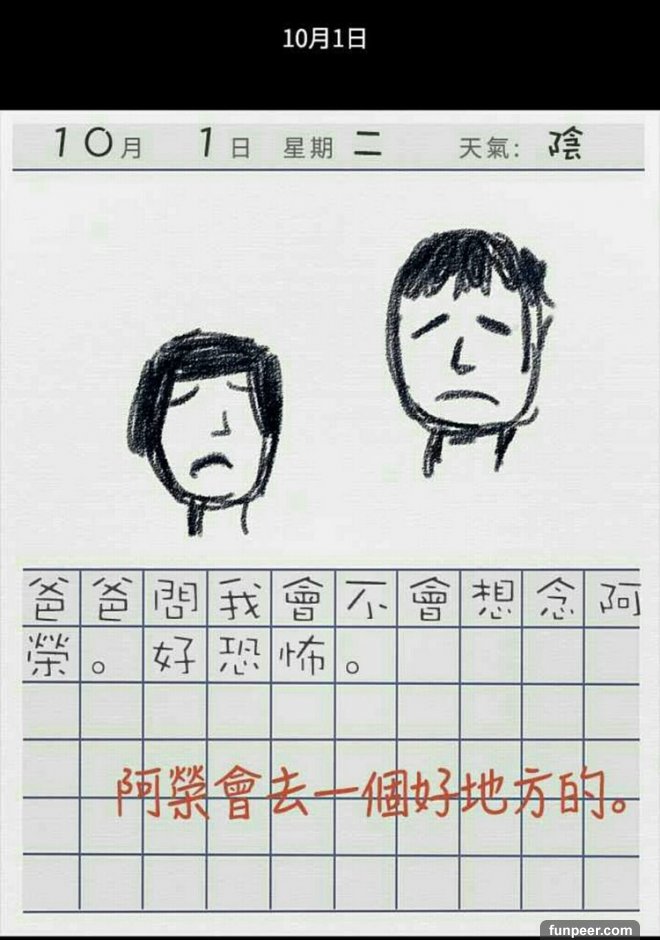 10月1日
10月 1日 星期 二 天氣: 陰
爸爸問我會不會想念阿
榮。好恐怖。
阿榮會去一個好地方的。
funpeer.com